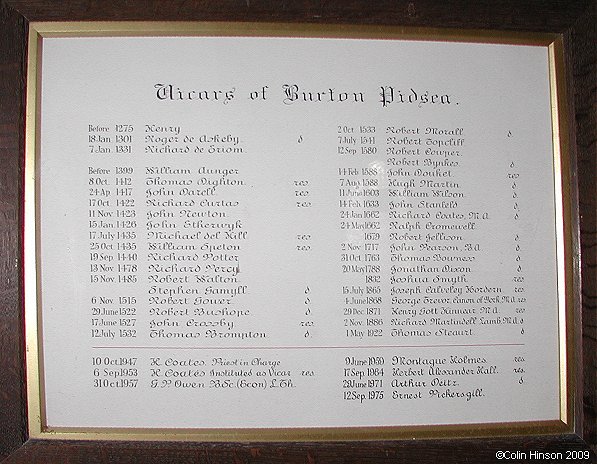 Vicars of Burton Pidsea.
Before 1275 Henry
18 Jan 1301 Roger de Askeby. d
7 Jan 1331 Richard de Triom.
Before 1399 William Aunger
8 Oct. 1412 Thomas Dighton res
24 Ap 1417 John Darell res
17 Oct 1422 Richard Curtas res
11 Nov 1423 John Newton
15 Jan 1426 John Etherwyk
17 July 1435 Michael del Hill res
25 Oct 1435 William Speton res
19 Sep 1440 Richard Potter
13 Nov 1478 Richard Percy
15 Nov 1485 Robert Walton
Stephen Gamyll d
6 Nov 1515 Robert Gower d
29 June 1522 Robert Bushope d
17 June 1527 John Crosby res
12 July 1532 Thomas Brompton d
10 Oct 1947 H. Coates. Priest in Charge
6 Sep 1953 H. Coates Instituted as Vicar res
31 Oct 1957 G.P. Owen B.Sc.(Econ) L.Th.
2 Oct 1533 Robert Morall d
7 July 1541 Robert Topcliff
12 Sep 1580 Robert Cowper
Robert Bynkes d
14 Feb John Douket res
7 Aug 1588 Hugh Martin d
11 June 1603 William Wilson d
14 Feb 1633 John Stanfeld d
24 Jan 1662 Richard Coates M.A d
24 May 1662 Ralph Cromewell
1679 Robert Jellison d
2 Nov 1717 John Pearson, B.A d
31 Oct 1763 Thomas Bowness d
20 May 1788 Jonathan Dixon d
1832 Joshua Smyth res
15 July 1865 Joseph Calveley Hordern res
4 June 1868 George Trevor Canon of York M.A res
29 Dec 1871 Henry Gott Kinnear M.A res
2 Nov 1886 Richard Martinwell Lamb M.A d
1 May 1922 Thomas Steart d
9 June 1959 Montague Holmes res
17 Sep 1964 Herbert Alexander Hall. res
28 June 1971 Arthur Deitz. d
12 Sep. 1975 Ernest Pickersgill.
©Colin Hinson 2009